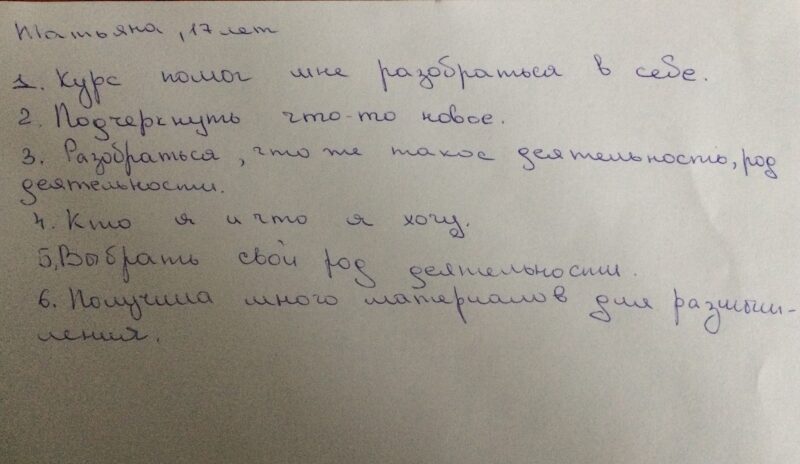 Татьяна, 17 лет
1. Курс помог мне разобраться в себе.
2. Подчеркнуть что-то новое.
3. Разобраться, что же такое деятельность, род
деятельности.
4. Кто я и что я хочу.
5. Выбрать свой род деятельности.
6. Получила много материалов для размыш-
ления.